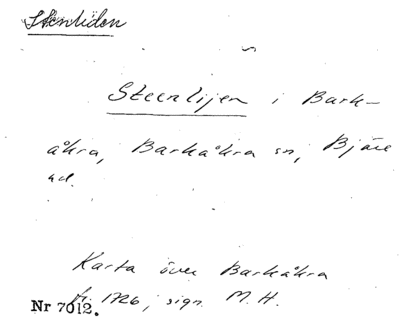 Stenliden
Steenlijen i Bark-
åkra, Barkåkra sn, Bjäre
hd.
Karta över Barkåkra
fr. 1726, sign. M. H.
Nr 7012.